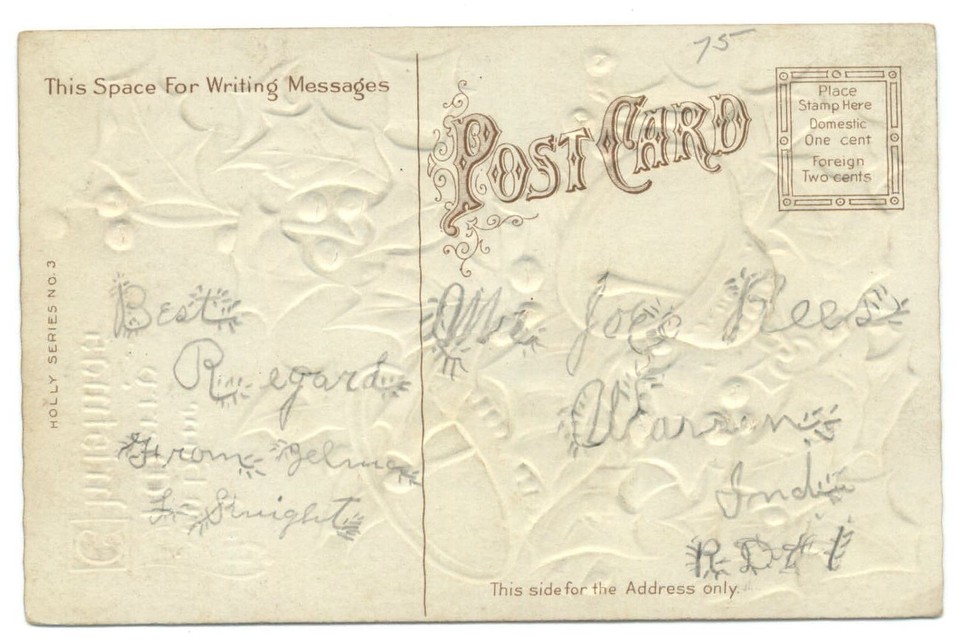 75
This Space For Writing Messages
POST CARD
Place
Stamp Here
Domestic
One cent
Foreign
Two cents
HOLLY SERIES NO. 3
Best
Regards
From Zelma
L Knight
Joe Rees
Warren
Ind
R.D. # 1
This side for the Address only.